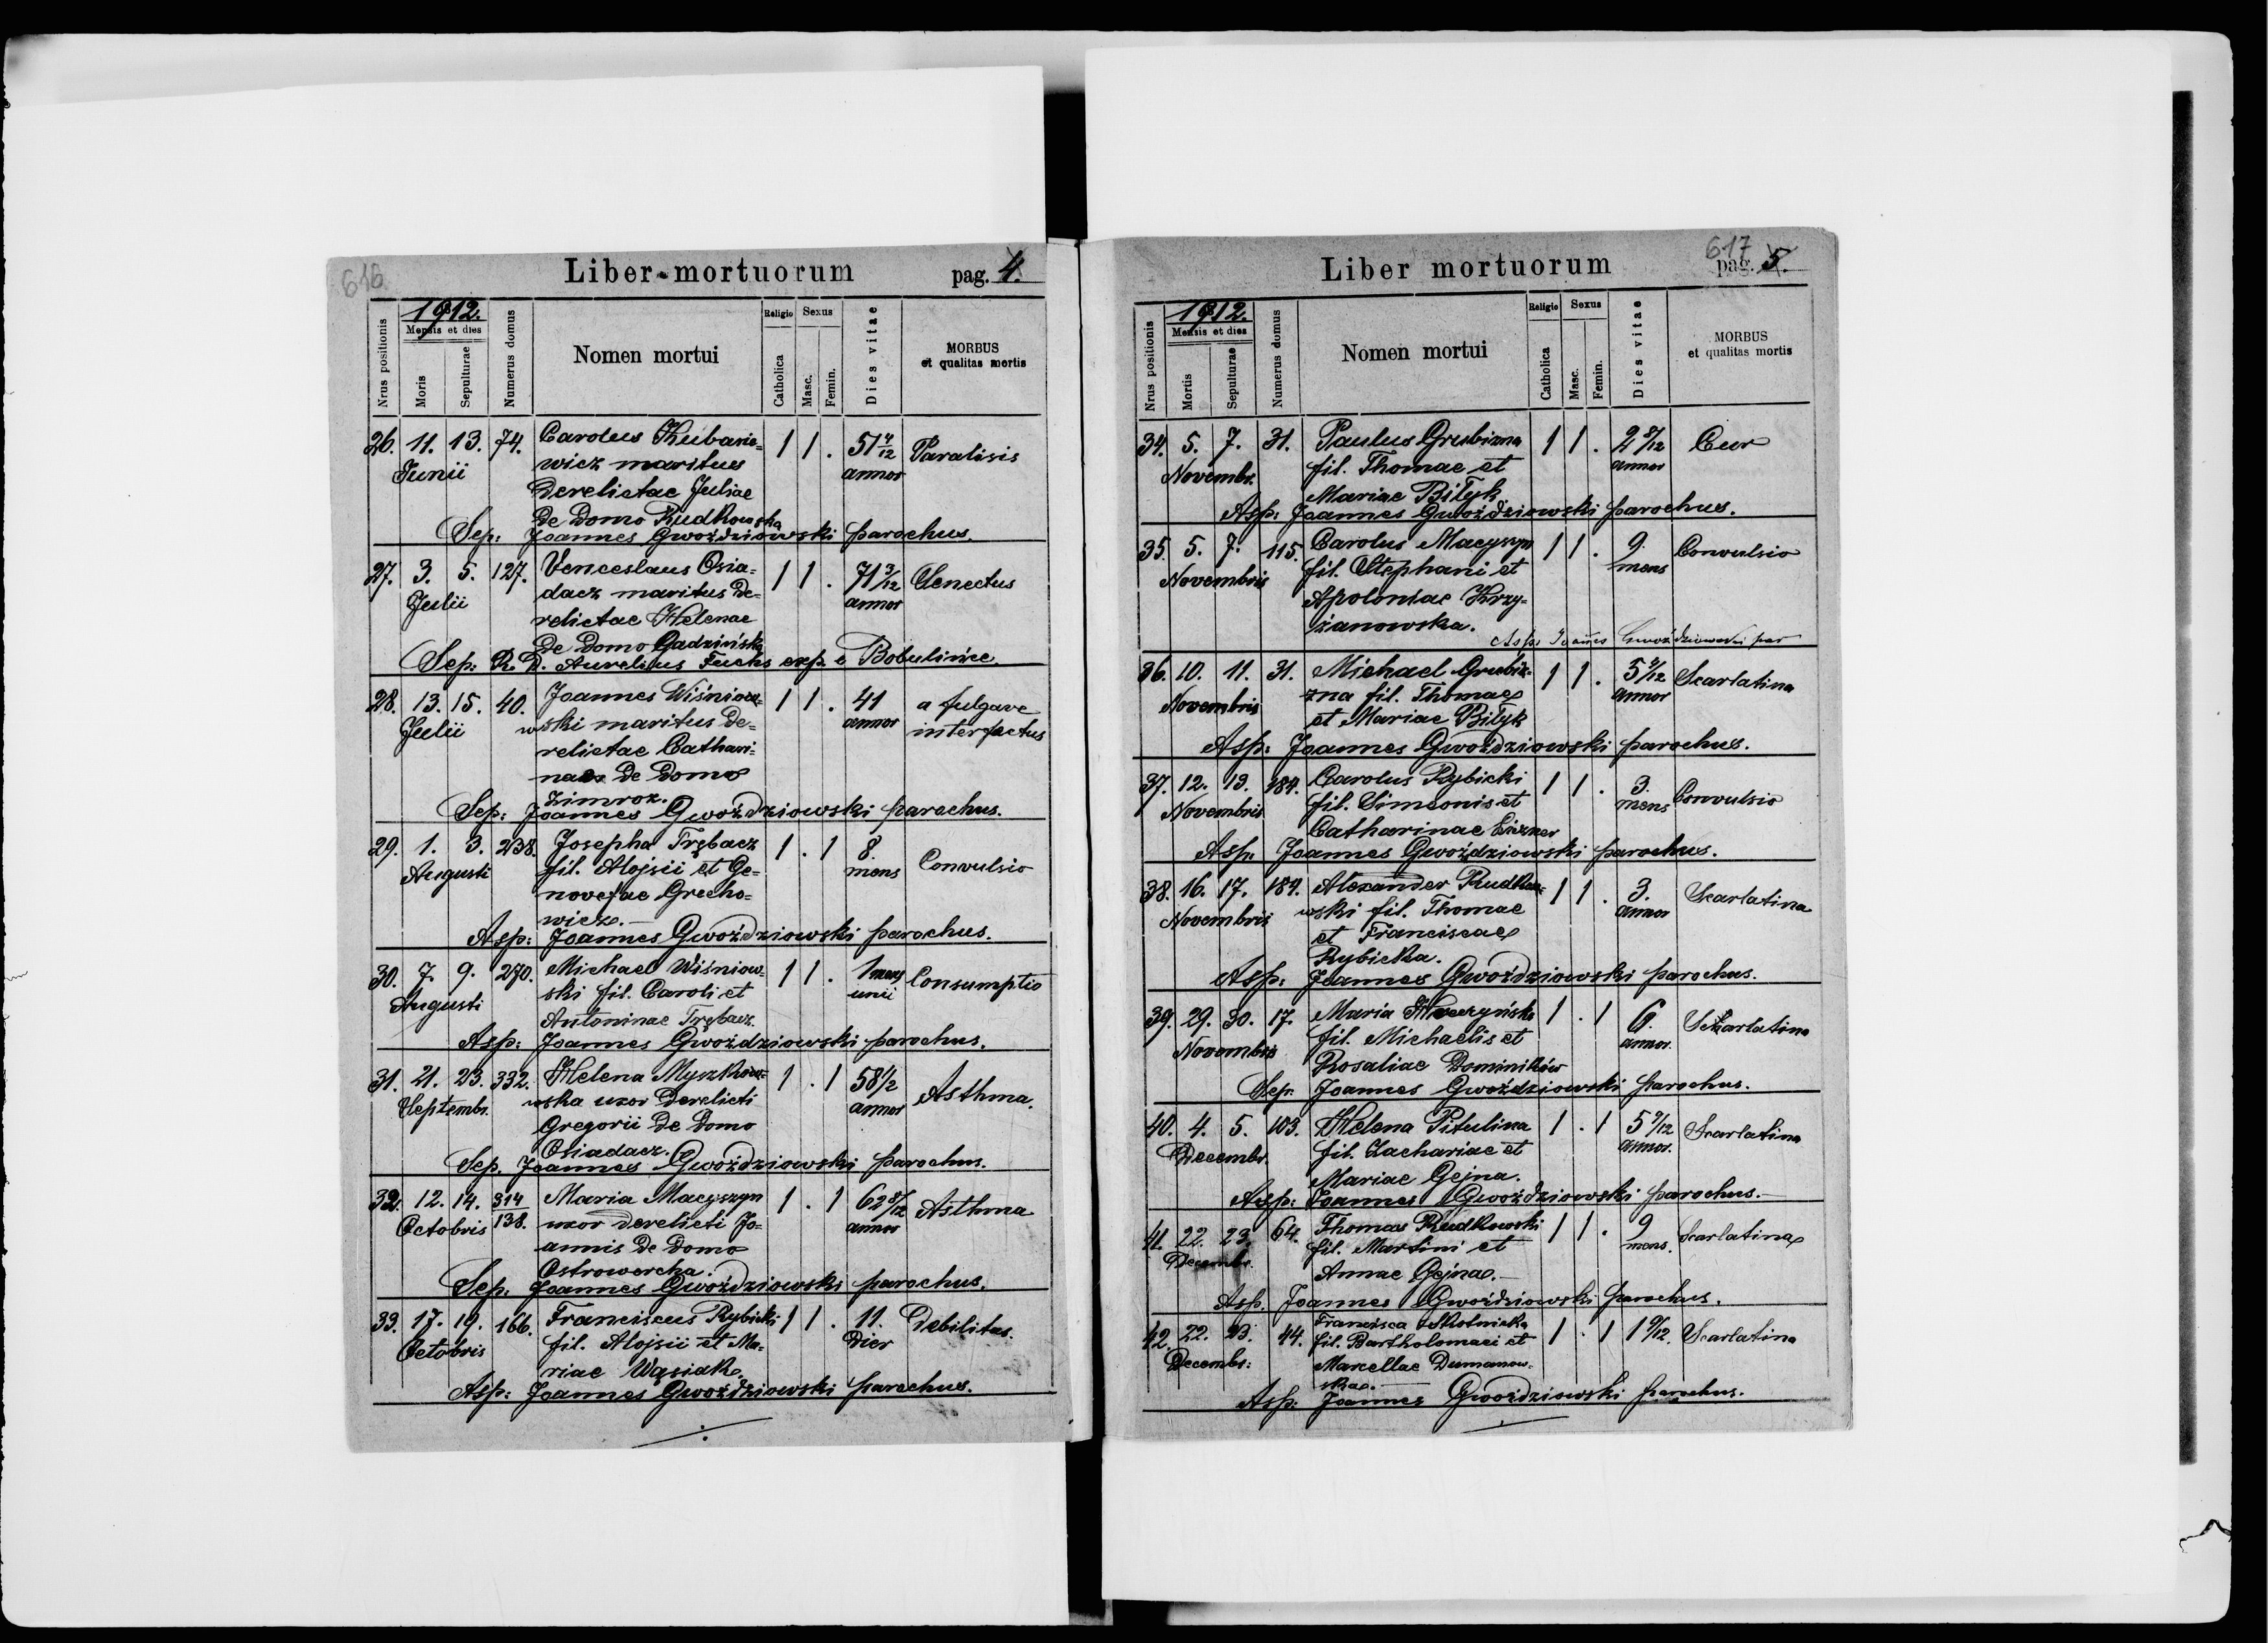 616
Liber mortuorum pag. 4.
Nrus positionis
1912.
Mensis et dies
Moris
Sepulturae
Numerus domus
Nomen mortui
Religio
Catholica
Sexus
Masc.
Femin.
Dies vitae
MORBUS
et qualitas mortis
26. 11. 13. 74. Carolus Kubasie= 1 1 . 51 4/12 Paralisis
Junii wicz maritus annor
derelictae Juliae
de domo Rudkowska
Sep: Joannes Gwoździowski parochus.
27. 3. 5. 127. Venceslaus Osia= 1 1 . 71 3/12 Senectus
Julii dacz maritus de= annor
relictae Helenae
de domo Gadzińska
Sep: R. D. Aurelius Fuchs exp. e Bobulińce.
28. 13. 15. 40. Joannes Wiśniow= 1 1 . 41 a fulgare
Julii wski maritus de= annor interfectus
relictae Cathari=
nae de domo
Zimroz.
Sep: Joannes Gwoździowski parochus.
29. 1. 3. 238. Josepha Trębacz 1 . 1 8. Convulsio
Augusti fil. Alojsii et Ge= mens
novefae Grecho=
wicz.
Asp: Joannes Gwoździowski parochus.
30. 7. 9. 270. Michael Wiśniow= 1 1 . 1 mens Consumptio
Augusti ski fil. Caroli et unii
Antoninae Trębacz.
Asp: Joannes Gwoździowski parochus.
31. 21. 23. 332. Helena Myszkow= 1 . 1 58 1/2 Asthma.
Septembr. wska uxor derelicti annor
Gregorii de domo
Osiadacz.
Sep. Joannes Gwoździowski parochus.
32. 12. 14. 314/138. Maria Macyszyn 1 . 1 62 8/12 Asthma
Octobris uxor derelicti Jo= annor
annis de domo
Ostrowercha.
Sep. Joannes Gwoździowski parochus.
33. 17. 19. 166. Franciscus Rybicki 1 1 . 11. Debilitas.
Octobris fil. Alojsii et Ma= dier
riae Wąsiak.
Asp: Joannes Gwoździowski parochus.
617
Liber mortuorum pag. 5.
Nrus positionis
1912.
Mensis et dies
Mortis
Sepulturae
Numerus domus
Nomen mortui
Religio
Catholica
Sexus
Masc.
Femin.
Dies vitae
MORBUS
et qualitas mortis
34. 5. 7. 31. Paulus Grubizna 1 1 . 2 8/12
Novembr. fil. Thomae et annor
Mariae Biłyk
Asp: Joannes Gwoździowski parochus.
35. 5. 7. 115. Carolus Macyszyn 1 1 . 9. Convulsio
Novembris fil. Stephani et mens
Apoloniae Krzy=
żanowska.
Asp: Joannes Gwoździowski par
36. 10. 11. 31. Michael Grubiz= 1 1 . Scarlatina
Novembris zna fil. Thomae annor
et Mariae Biłyk
Asp: Joannes Gwoździowski parochus.
37. 12. 13. 184. Carolus Rybicki 1 1 . 3. Convulsio
Novembris fil. Simeonis et mens
Catharinae
Asp. Joannes Gwoździowski parochus.
38. 16. 17. 184. Alexander Rudkow= 1 1 . 3. Scarlatina
Novembris wski fil. Thomae annor
et Franciscae
Rybicka.
Asp: Joannes Gwoździowski parochus.
39. 29. 30. 17. Maria 1 . 1 6. Scarlatina
Novembris fil. Michaelis et annor.
Rosaliae Dominików
Sep. Joannes Gwoździowski parochus.
40. 4. 5. 103. Helena Pitulina 1 . 1 Scarlatina
Decembr. fil. Zachariae et annor.
Mariae Gejna.
Asp: Joannes Gwoździowski parochus.
41. 22. 23. 64. Thomas Rudkowski 1 1 . 9 Scarlatina
Decembr. fil. Martini et mens.
Annae Gejna.
Asp. Joannes Gwoździowski parochus.
42. 22. 23. 44. Francisca Słotnicka 1 . 1 Scarlatina
Decembr: fil. Bartholomaei et
Marcellae Dumanow=
ska.
Asp: Joannes Gwoździowski parochus.